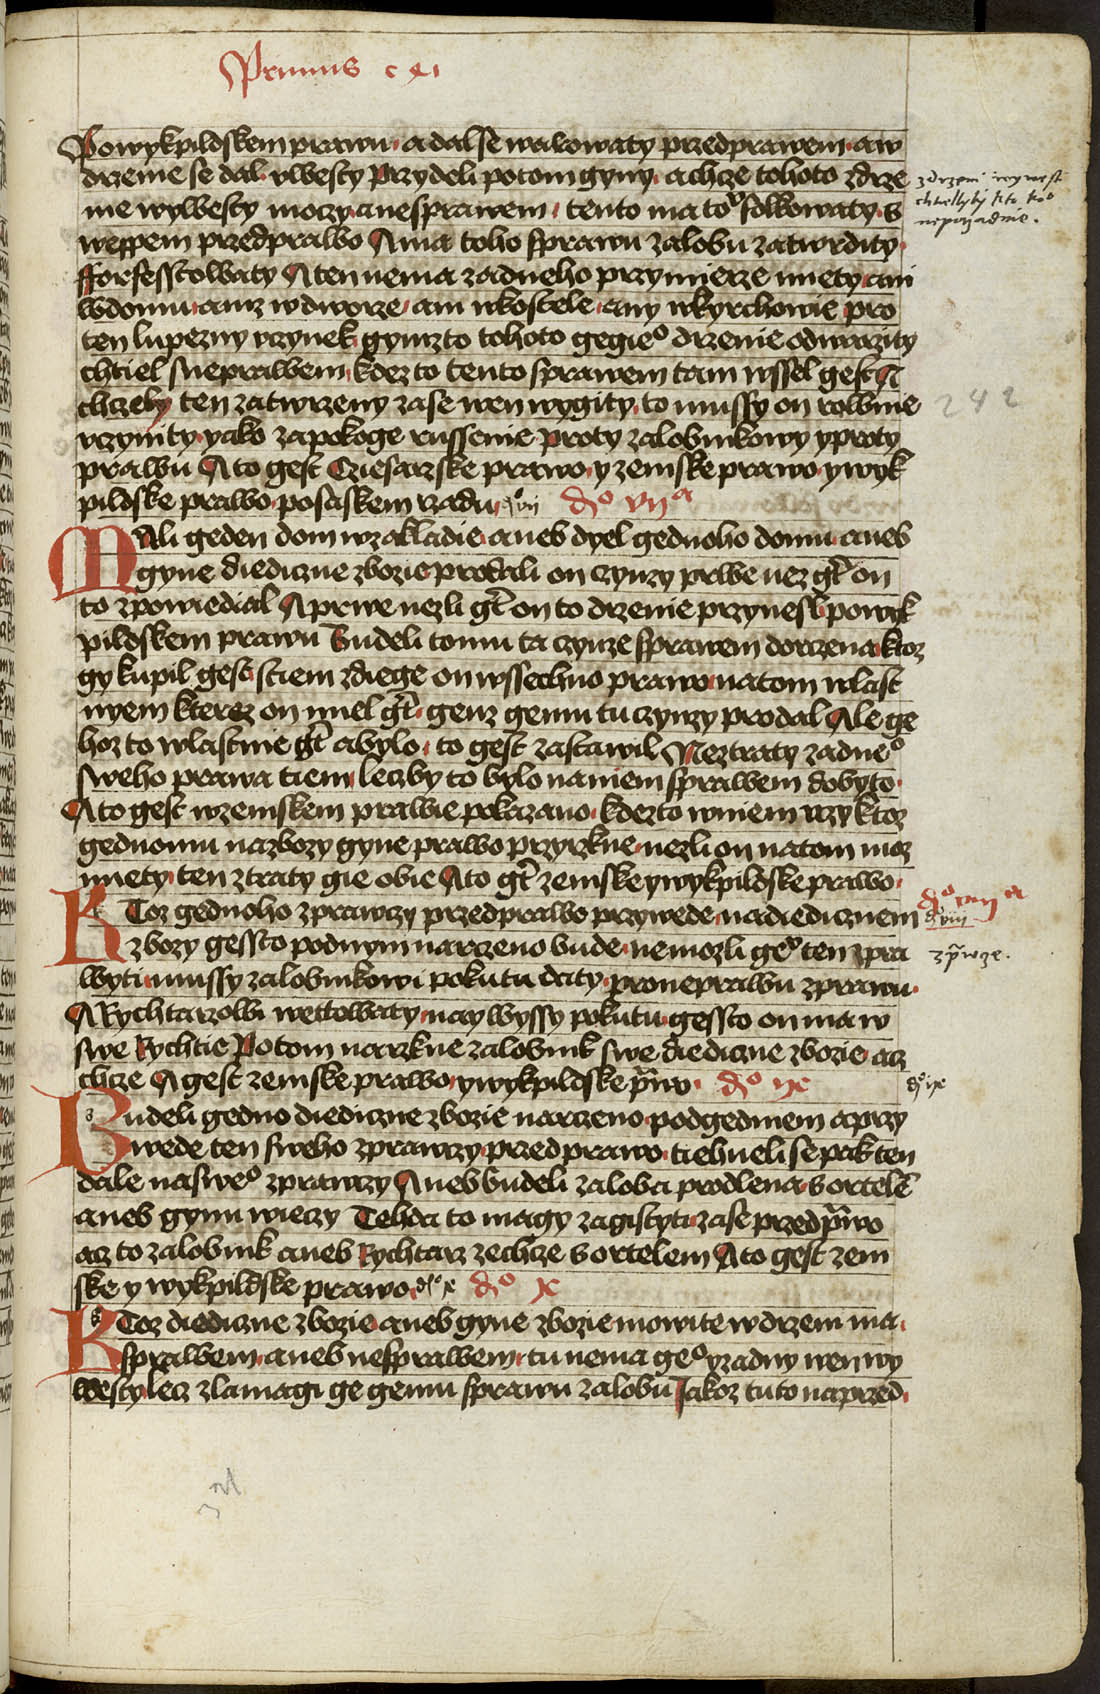 Primus c xi
Powykpildskem prawu a dal se walowaty przed prawem a w
drzenie se dal vwesty Przydeli potom gyny a chcze tohoto zdrze
nie wywesty moczy a nesprawem tento ma to folkowaty s
weppem przed prawo A ma toho sprawu zalobu zatwrdity
fforfesstowaty A ten nema zadneho przymierze miety ani
w domu anz w dworze ani w kostele any w kyrchowie pro
ten lupezny vczynek gymzto tohoto gegieº drzenie odwrazity
chtiel s neprawem kdez to tento sprawem tam wssel gest A
chczely ten zatwrzeny zase wen wygity to mussy on rowne
vczynity yako za pokoge russenie proty zalobnikowy y proty
prawu A to gest Cziesarzske prawo y zemske prawo y wyk
pildske prawo po saskem rzadu dº vii dº viiª
Mali geden dom w zakladie aneb dyel gednoho domu aneb
gyne diediczne zbozie prodali on czynzy prwe nez gt on
to zpowiedial A prwe nezli gt on to drzenie przynesl po wyk
pildskem prawu Budeli tomu ta czynze sprawem dorczena ktoz
gy kupil gest s tiem zdiege on wssechno prawo na tom wlast
nyem kterez on miel gt genz gemu tu czynzy prodal Ale ge
hoz to wlastnie gt a bylo to gest zastawil Neztraty zadneº
sweho prawa tiem lecz by to bylo na niem sprawem dobyto
A to gest w zemskem prawie pokazano kdezto w niem rzy ktoz
gednomu na zbozy gyne prawo przyrzkne nezli on na tom moz
miety ten ztraty gie obie A to gt zemske y wykpildske prawo
Ktoz gednoho zprawczy przed prawo przywede na diedicznem
zbozy gessto pod nym narzeno bude nemozli geº ten zpra
wyti mussy zalobnikowi pokutu daty pro neprawu zprawu
A Rychtarzowi wettowaty nay wyssy pokutu gessto on ma w
swe Rychtie Potom narzkne zalobnik swe diediczne zbozie acz
chcze A gest zemske prawo y wykpildske pwo dº ix
Budeli gedno diediczne zbozie narzeno pod gedniem a przy
wede ten sweho zprawczy przed prawo tiehneli se pak ten
dale na sweº zprawczy Aneb budeli zaloba prodlena s ortele
aneb gynu wieczy Tehda to magy zagistyti zase przed pwo
acz to zalobnik aneb Rychtarz zechcze s ortelem A to gest zem
ske y wykpildske prawo dº x dº x
Ktoz diediczne zbozie aneb gyne zbozie mowite w drzeni ma
sprawem aneb nesprawem tu nema geº yzadny wen wy
westy lecz zlamagi ge gemu sprawu zalobu Jakoz tuto naprzed
zdrzeni wywesti
chtielliby kto koº
neporzadnie.
242
dº viiiª
dº viii
zpwcze.
dº ix